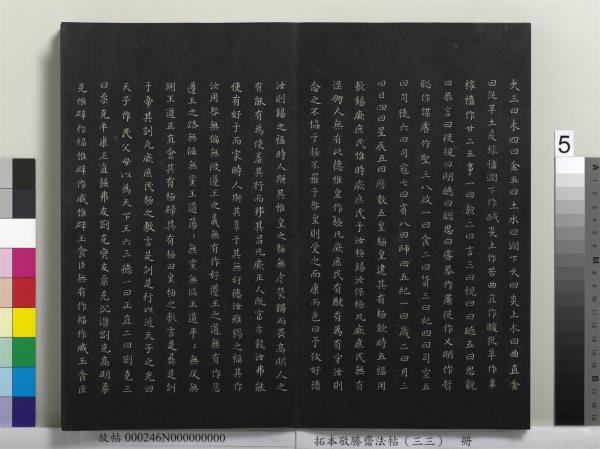 火三曰木四曰金五曰土水曰潤下火曰炎上木曰曲直金
曰從革土爰稼穡潤下作鹹炎上作苦曲直作酸從革作辛
稼穡作甘二五事一曰貌二曰言三曰視四曰聽五曰思貌
曰恭言曰從視曰明聽曰聰思曰睿恭作肅從作乂明作哲
聰作謀睿作聖三八政一曰食二曰貨三曰祀四曰司空五
曰司徒六曰司寇七曰賓八曰師四五紀一曰歲二曰月三
曰日四曰星辰五曰曆數五皇極皇建其有極斂時五福用
敷錫厥庶民惟時厥庶民于汝極錫汝保極凡厥庶民無有
淫朋人無有比德惟皇作極凡厥庶民有猷有為有守汝則
念之不協于極不罹于咎皇則受之而康而色曰予攸好德
汝則錫之福時人斯其惟皇之極無虐煢獨而畏高明人之
有能有為使羞其行而邦其昌凡厥正人既富方穀汝弗能
使有好于而家時人斯其辜于其無好德汝雖錫之福其作
汝用咎無偏無陂遵王之義無有作好遵王之道無有作惡
遵王之路無偏無黨王道蕩〻無黨無偏王道平〻無反無
側王道正直會其有極歸其有極曰皇極之敷言是彝是訓
于帝其訓凡厥庶民極之敷言是訓是行以近天子之光曰
天子作民父母以為天下王六三德一曰正直二曰剛克三
曰柔克平康正直彊弗友剛克燮友柔克沉潛剛克高明柔
克惟辟作福惟辟作威惟辟玉食臣無有作福作威玉食臣
故帖 000246N000000000
拓本敬勝齋法帖（三三） 冊
5